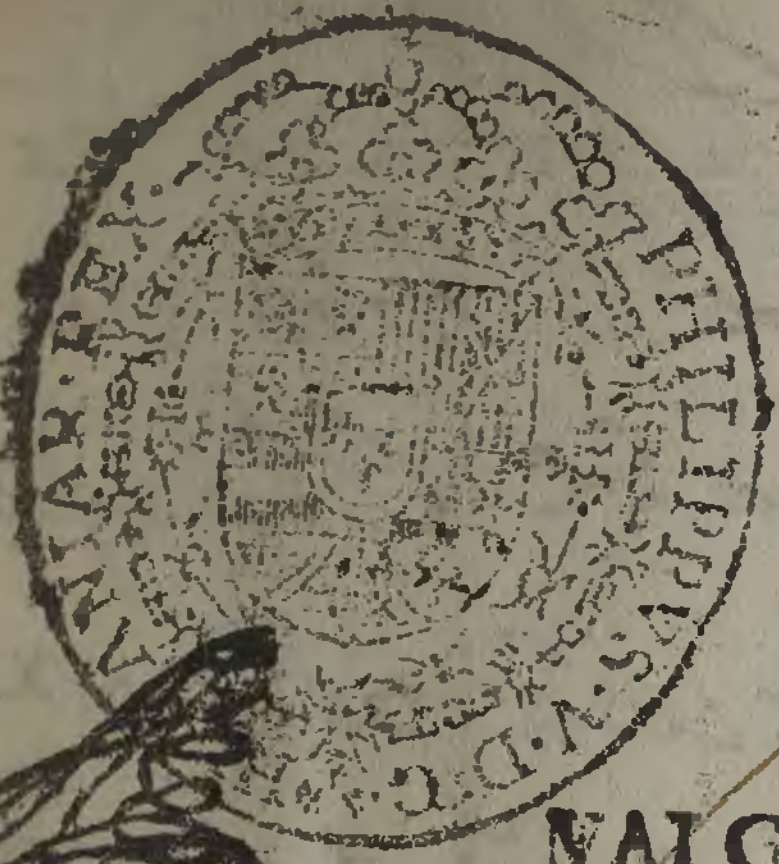 PHILIPPVS·V·D·G· ANIAR·REX·